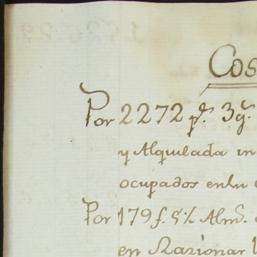 Cos
Por 2272 p.s 3 g.
y Alquilada in
ocupados enlu
Por 179 f. 5½ Alm.s
en Razionar l